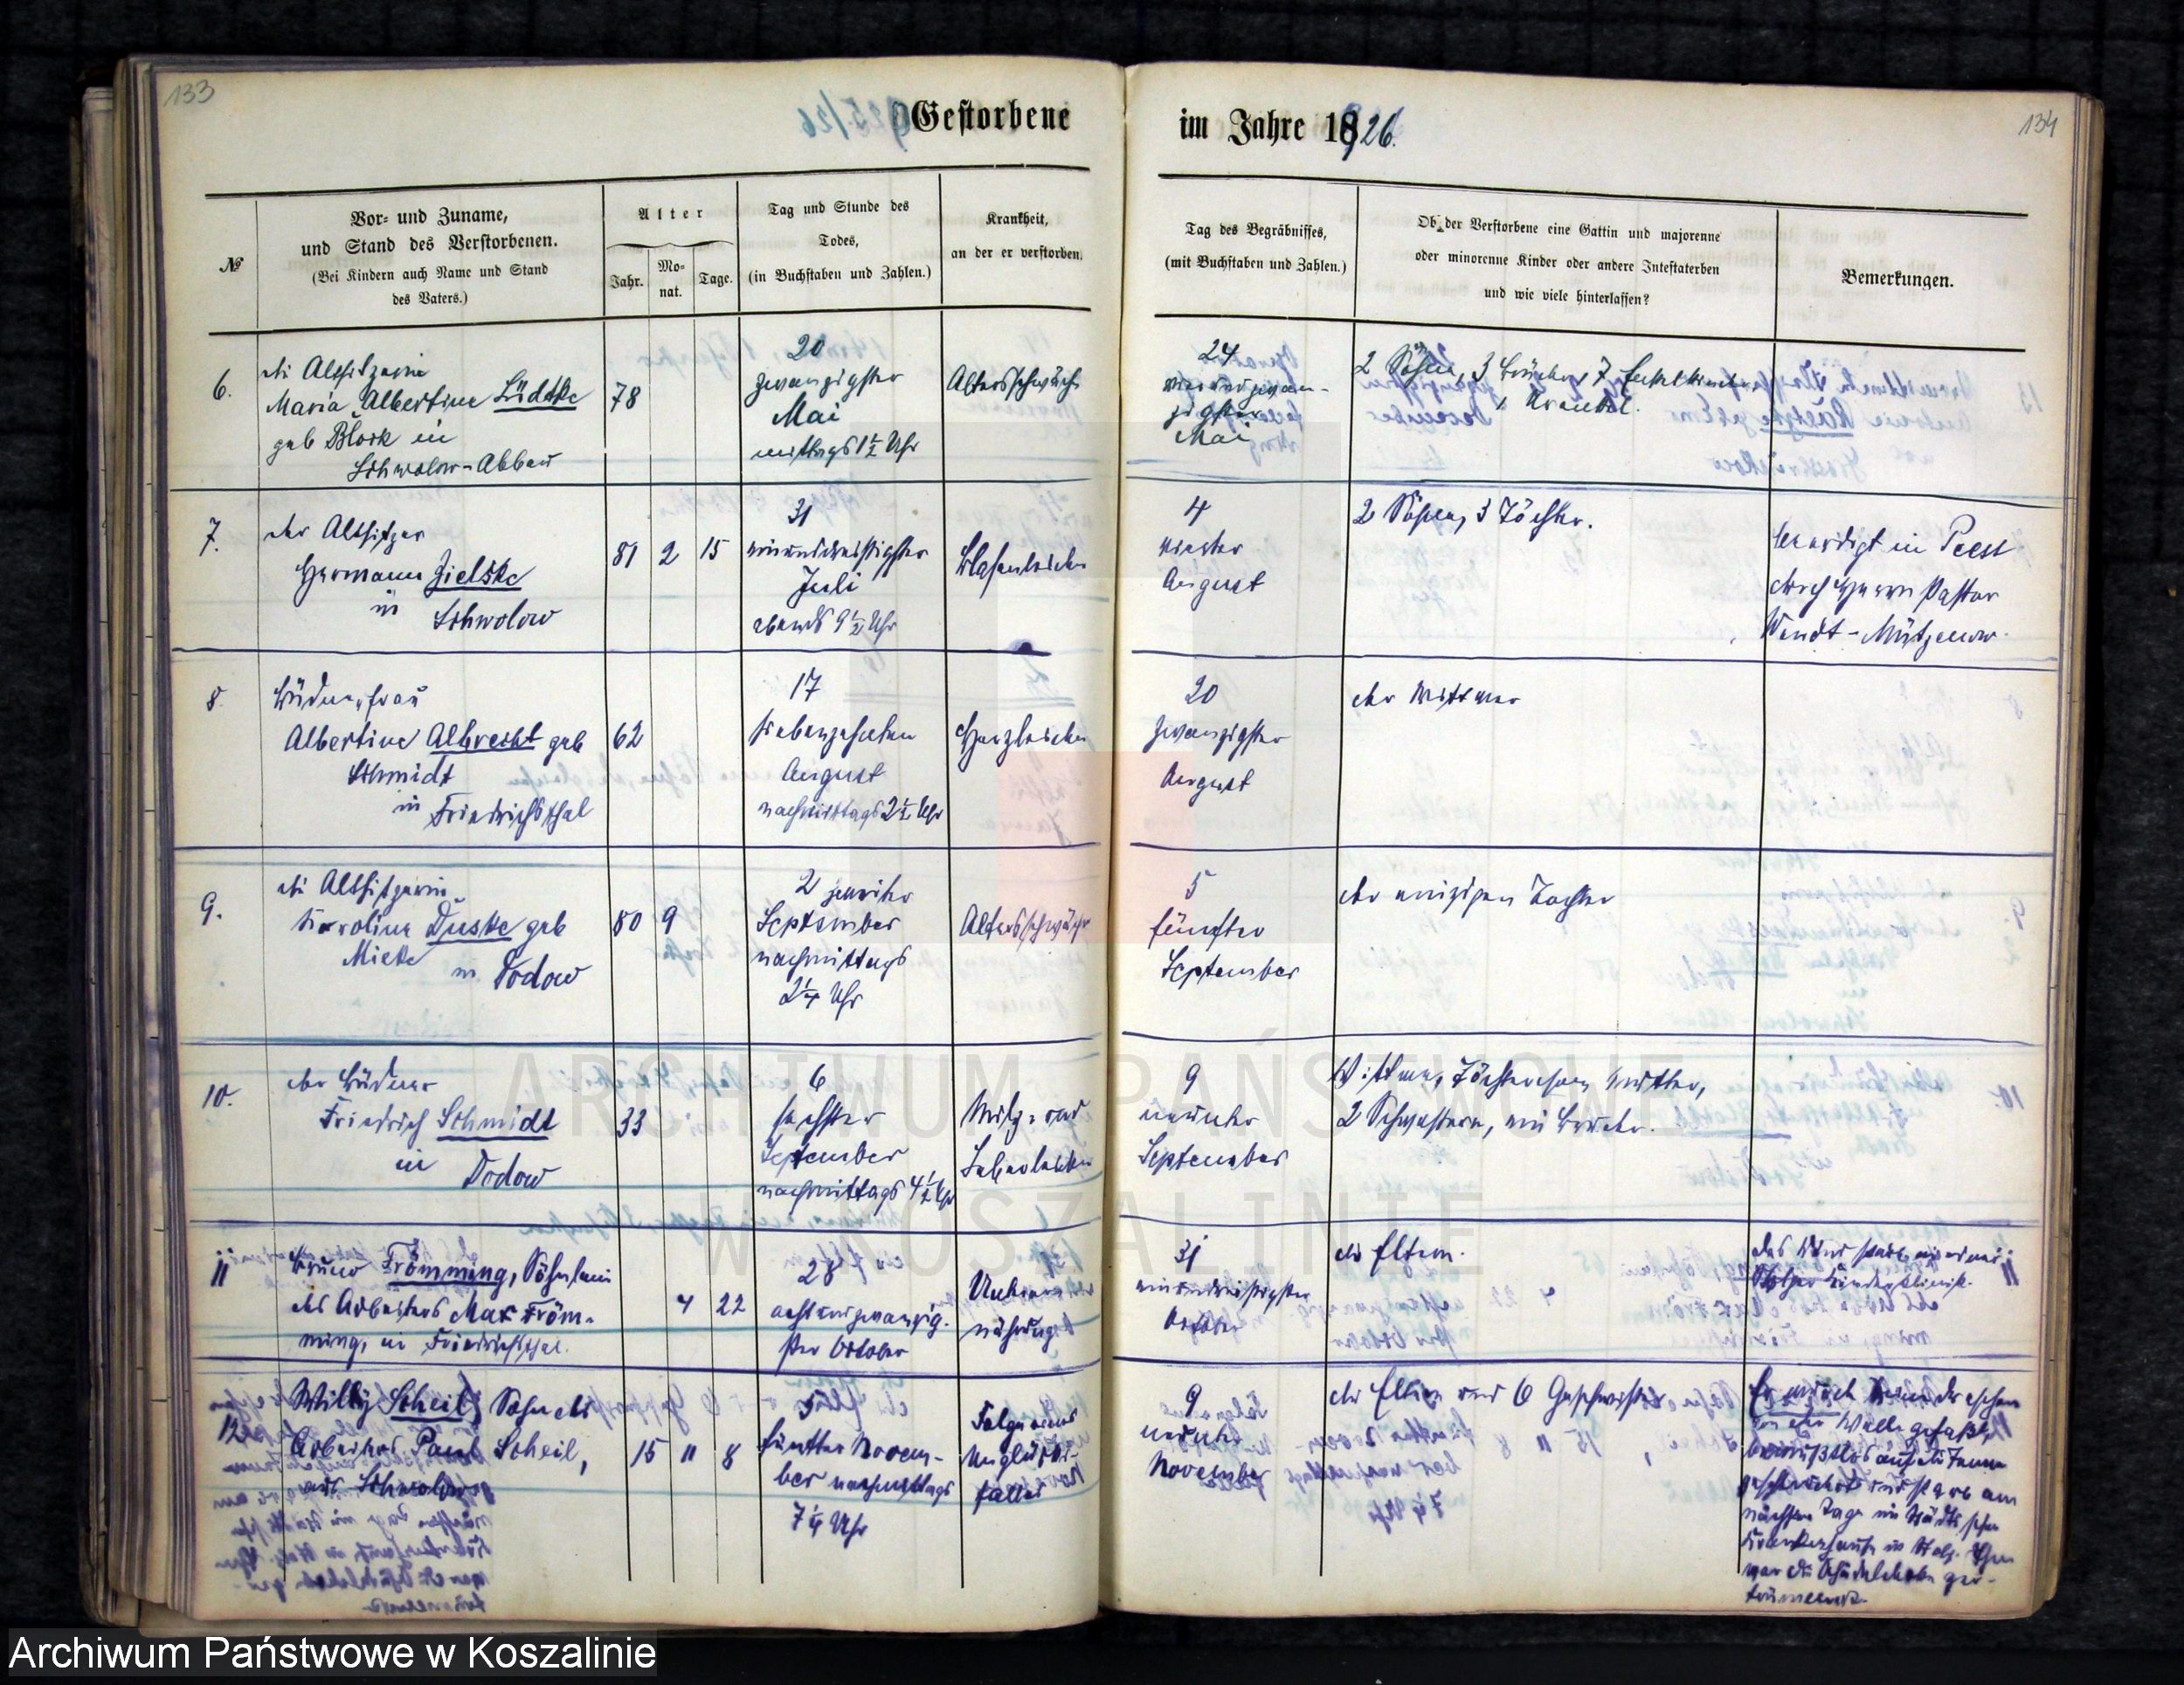 133
Gestorbene
im Jahre 1926.
134
№
Vor- und Zuname,
und Stand des Verstorbenen.
(Bei Kindern auch Name und Stand
des Vaters.)
Alter
Jahr.
Mo-
nat.
Tage.
Tag und Stunde des
Todes,
(in Buchstaben und Zahlen.)
Krankheit,
an der er verstorben.
Tag des Begräbnisses,
(mit Buchstaben und Zahlen.)
Ob der Verstorbene eine Gattin und majorenne
oder minorenne Kinder oder andere Intestaterben
und wie viele hinterlassen?
Bemerkungen.
6.
die Altsitzerin
Maria Albertine Lüdtke
geb Block in
Schwolow-Abbau
78
20
zwanzigster
Mai
mittags 1½ Uhr
Altersschwäche
24
vierundzwan-
zigster
Mai
2 Söhne, 3 Brüder, 7 Enkelkinder,
7.
der Altsitzer
Hermann Zielske
in
Schwolow
81 2 15
31
einunddreißigster
Juli
abends 9½ Uhr
Blasenleiden
4
vierter
August
2 Söhne, 3 Töchter.
beerdigt in Peest
durch Herrn Pastor
Wendt-Mützenow.
8.
Büdnerfrau
Albertine Albrecht geb
Schmidt
in Friedrichsthal
62
17
siebenzehnten
August
nachmittags 2½ Uhr
Herzleiden
20
zwanzigster
August
der Wittwer
9.
die Altsitzerin
Karoline Duske geb
Mielke in Dodow
80 9
2 zweiter
September
nachmittags
2¼ Uhr
Altersschwäche
5
fünfter
September
der einzigen Tochter
10.
der Büdner
Friedrich Schmidt
in Dodow
33
6
sechster
September
nachmittags 4½ Uhr
Milz- und
Leberleiden
9
neunter
September
Wittwe, Töchterchen, Mutter,
2 Schwestern, ein Bruder.
11
Bruno Frömming, Söhnlein
des Arbeiters Max Fröm-
ming, in Friedrichsthal.
4 22
28
achtundzwanzig-
ster October
31
einunddreißigster
October
die Eltern.
Das Kind starb in
Stolper Kinderklinik.
12
Willy Scheil, Sohn des
Arbeiters Paul Scheil,
aus Schwolow
15 11 8
5
fünfter Novem-
ber nachmittags
7¼ Uhr
Folge eines
Unglücks-
falles
9
neunter
November
die Eltern und 6 Geschwister
Er wurde beim Dreschen
von der Welle gefaßt,
bewußtlos auf die Tenne
geschleudert und starb am
nächsten Tage im städtischen
Krankenhause in Stolp. Ihm
war die Schädeldecke zer-
trümmert.
ARCHIWUM PAŃSTWOWE
W KOSZALINIE
Archiwum Państwowe w Koszalinie